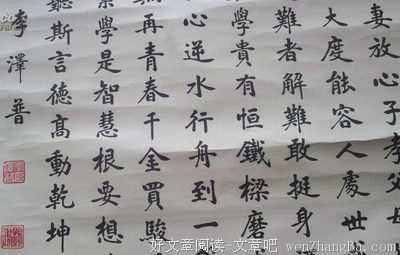 妻放心子孝父母
大度能容人處世
難者解難敢挺身
學貴有恒鐵樑磨
心逆水行舟到一
再青春千金買駿
學是智慧根要想
聽斯言德高動乾坤
李澤普
好文章阅读-文章吧 wenZhangBa.com